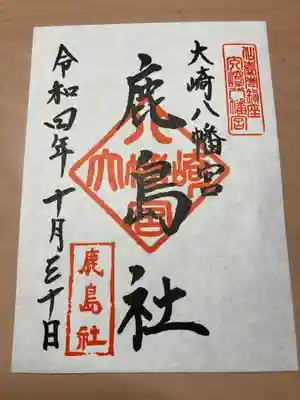 仙臺鎮座
大崎八幡宮
大崎八幡宮
鹿島社
大崎八幡宮
令和四年十月三十日
鹿島社